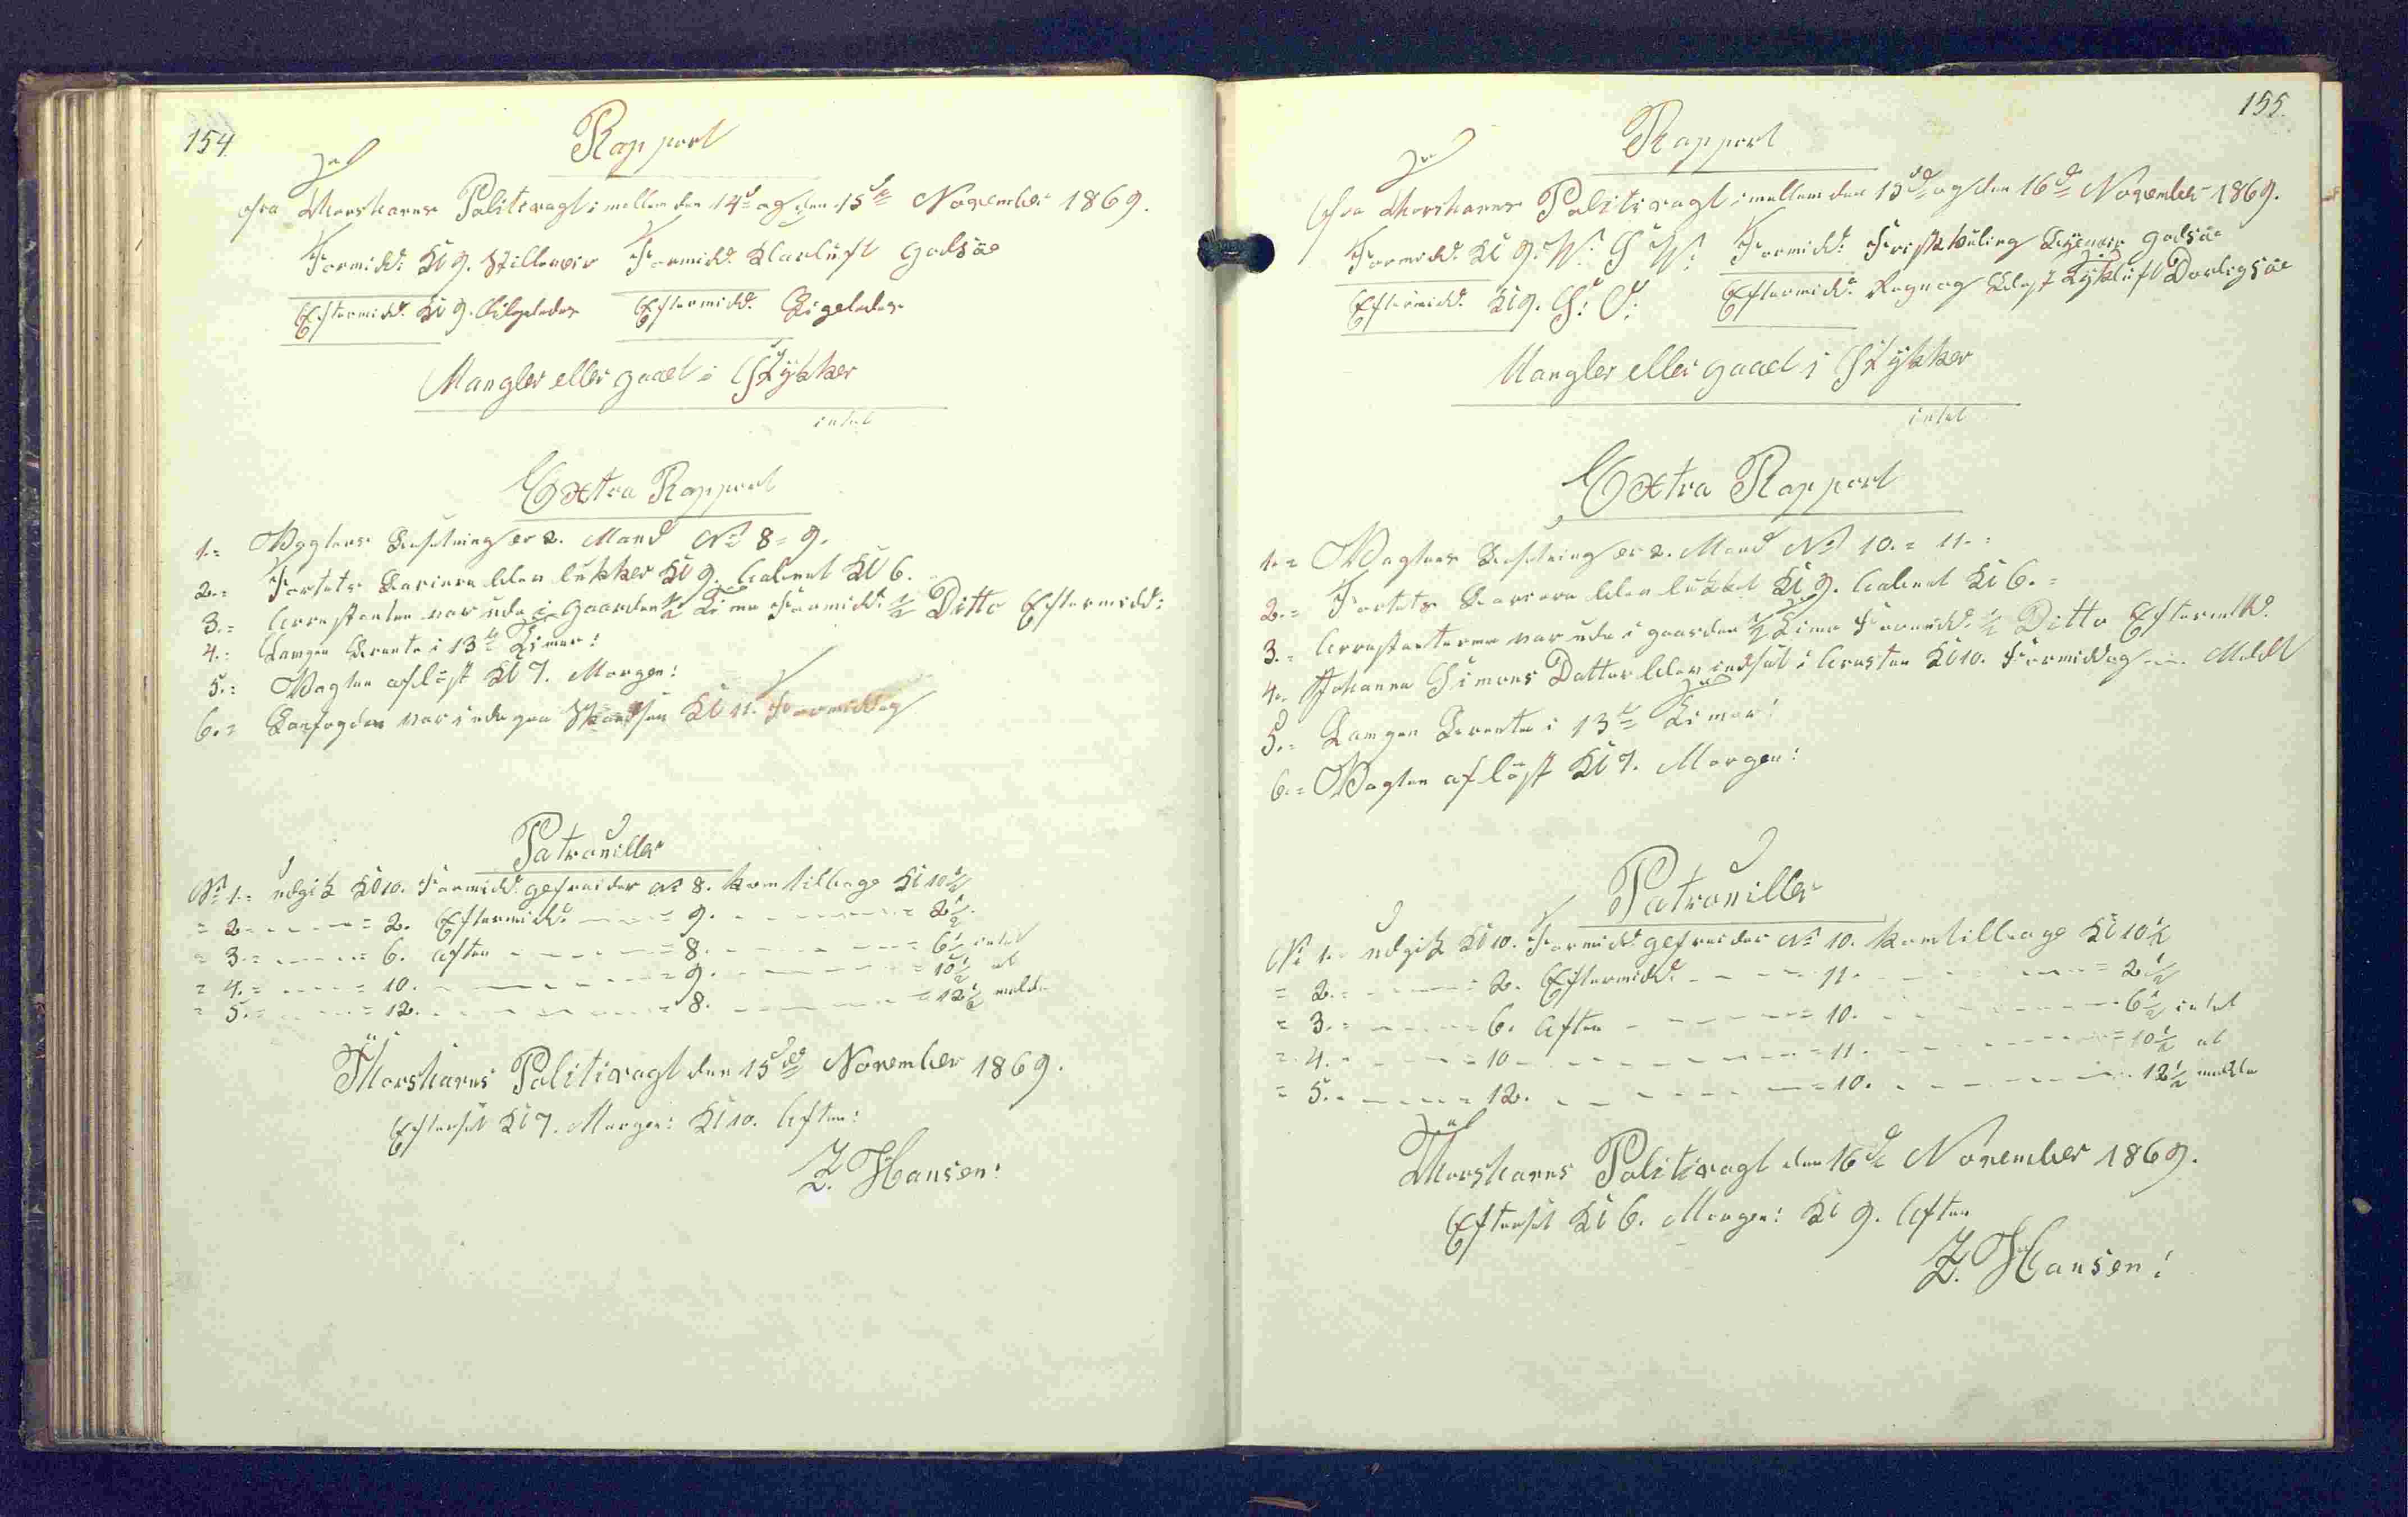 154.
Rapport
fra Thorshavns Politivagt imellem den 14de og den 15de November 1869.
Formidd: Kl 9. Stilleveir Formidd. Klarluft godsöe
Eftermidd. Kl 9. ligeledes Eftermidd. Ligeledes
Mangler eller gaaet i Stykker
intet
Extra Rapport
1.= Vagtens Besetning er 2. Mand No 8 = 9.
2.= Fortets Bariere blev lukket Kl 9. aabnet Kl 6.
3.= Arrestanten var ude i Gaarden ½ Time Formidd. ½ Ditto Eftermidd:
4.= Lampen Brente i 13 Timer:
5.= Vagten aflöst Kl 7. Morgen:
6.= var inde paa Skandsen Kl 11. Formiddag
Patrouiller
No 1.= udgik Kl 10. Formidd. gefreider No 8. kom tilbage Kl 10½
= 2 - - - = 2. Eftermidd. - - = 9. - - - = 2½.
= 3.= - - - = 6. Aften - - - = 8. - - - = 6½ intet
= 4.= - - - = 10. - - - = 9. - - - = 10½ at
= 5.= - - - = 12. - - - = 8. - - - = 12½ melde
Thorshavns Politivagt den 15de November 1869.
Efterset Kl 7. Morgen: Kl 10. Aften:
Z. Hansen:
155.
Rapport
fra Thorshavns Politivagt imellem den 15de og den 16de November 1869.
Formidd. Kl 9. W. S W. Formidd: Frisk kuling godsöe
Eftermidd. Kl 9. S: O: Eftermidd. Regn og Blest Tykluft Darligsöe
Mangler eller gaaet i Stykker
intet
Extra Rapport
1.= Vagtens Besetning er 2. Mand No 10. = 11.=
2.= Fortets Bariere blev lukket Kl 9. aabnet Kl 6.=
3.= Arrestanterne var ude i gaarden ½ Time Formidd. ½ Ditto Eftermidd.
4.= Johanna Simons Datter blev indsat i Arresten Kl 10. Formiddag Meldt
5.= Lampen Brente i 13 Timer:
6.= Vagten aflöst Kl 7. Morgen:
Patrouiller
No 1.= udgik Kl 10. Formidd. gefreider No 10. kom tilbage Kl 10½
= 2.= - - - = 2. Eftermidd. - - = 11. - - - = 2½
= 3.= - - - = 6. Aften - - - = 10. - - - 6½ intet
= 4.= - - - = 10 - - - = 11. - - - = 10½ at
= 5.= - - - = 12. - - - = 10. - - - 12½ melde
Thorshavns Politivagt den 16de November 1869.
Efterset Kl 6. Morgen: Kl 9. Aften
Z. Hansen: